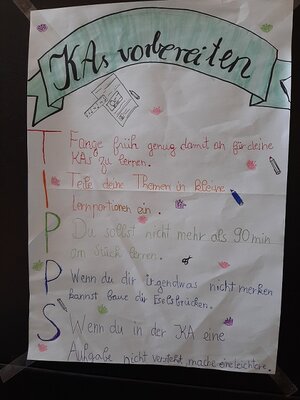 KAs vorbereiten
TIPPS
Fange früh genug damit an für deine
KAs zu lernen.
Teile deine Themen in kleine
Lernportionen ein.
Du sollst nicht mehr als 90 min
am Stück lernen.
Wenn du dir irgendwas nicht merken
kannst baue dir Eselsbrücken.
Wenn du in der KA eine
Aufgabe nicht verstehst, mache eine leichtere.